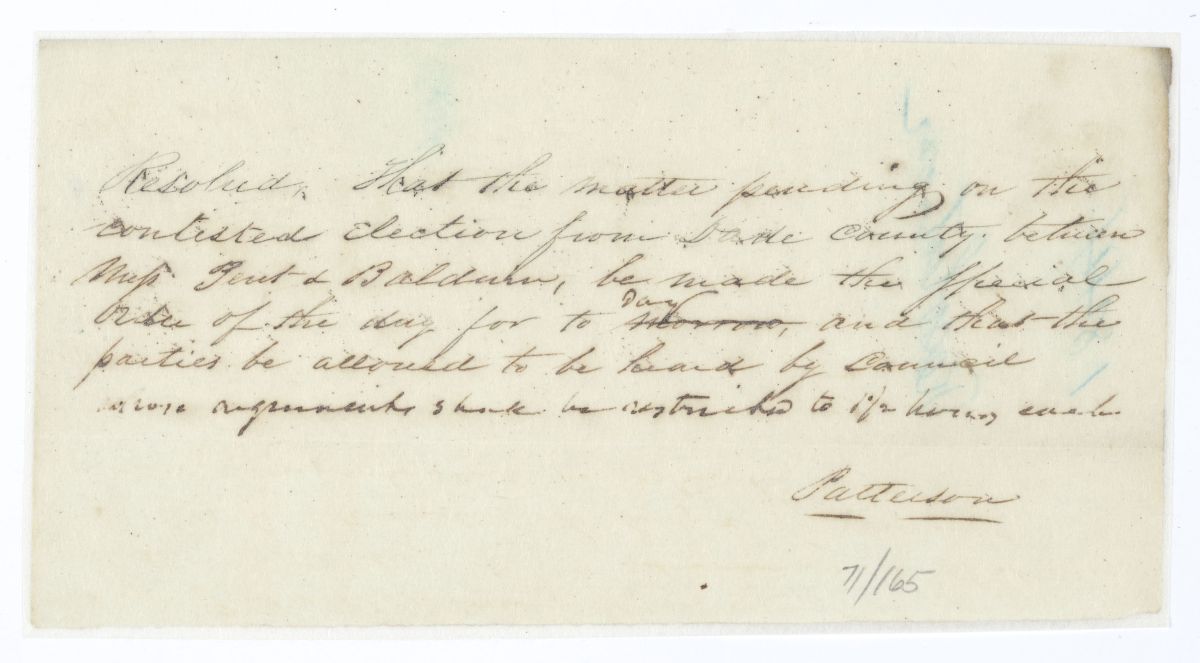 Resolved, That the matter pending on the
contested Election from Dade County between
Mess Pent & Baldwin, be made the Special
Order of the day for to day morrow, and that the
parties be allowed to be heard by Council
whose arguments shall be restricted to 1/2 hour each
Patterson
71/165